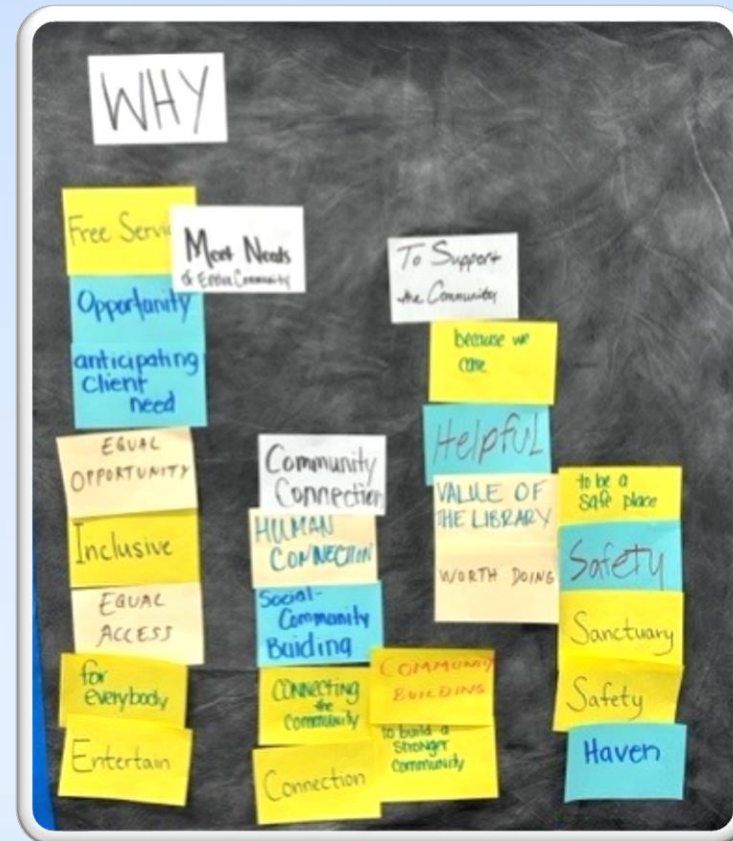 WHY
Free Servi
Meet Needs
of Entire Community
Opportunity
anticipating
client
need
EQUAL
OPPORTUNITY
Inclusive
EQUAL
ACCESS
for
everybody
Entertain
Community
Connection
HUMAN
CONNECTION
Social-
Community
Buiding
CONNECTING
the
Community
Connection
COMMUNITY
BUILDING
to build a
stronger
community
To Support
the Community
because we
care
Helpful
VALUE OF
THE LIBRARY
WORTH DOING
to be a
safe place
Safety
Sanctuary
Safety
Haven